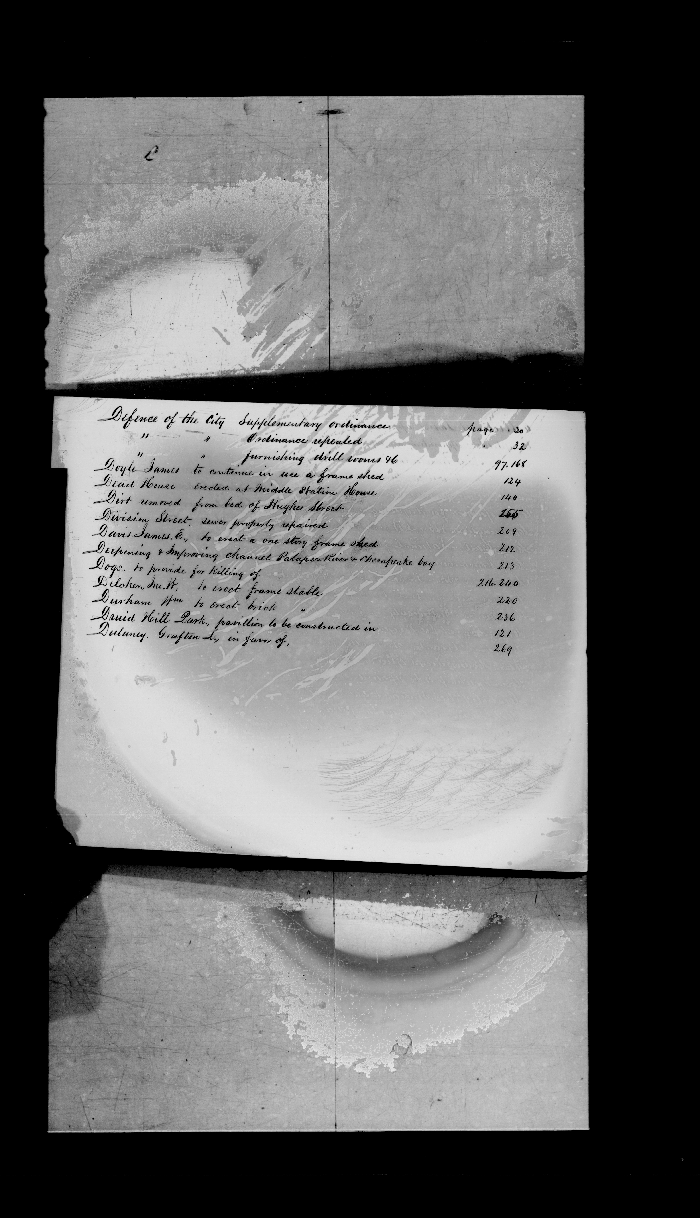 Defence of the City Supplementary ordinance page 30
" " Ordinance repealed " 32
" " furnishing drill rooms &c 97.168
Doyle James to continue in use a frame shed 124
Dead House erected at Middle Station House 140
Dirt removed from bed of Hughes Street
Division Street, sewer properly repaired 209
Davis James, to erect a one story frame shed 212
Deepening & Improving channel Patapsco River & Chesapeake bay 213
Dogs. to provide for Killing of 216.240
to erect frame stable 220
Durham Wm to erect brick " 236
Druid Hill Park, pavilion to be constructed in 121
Dulaney. Grafton L, in favor of, 269